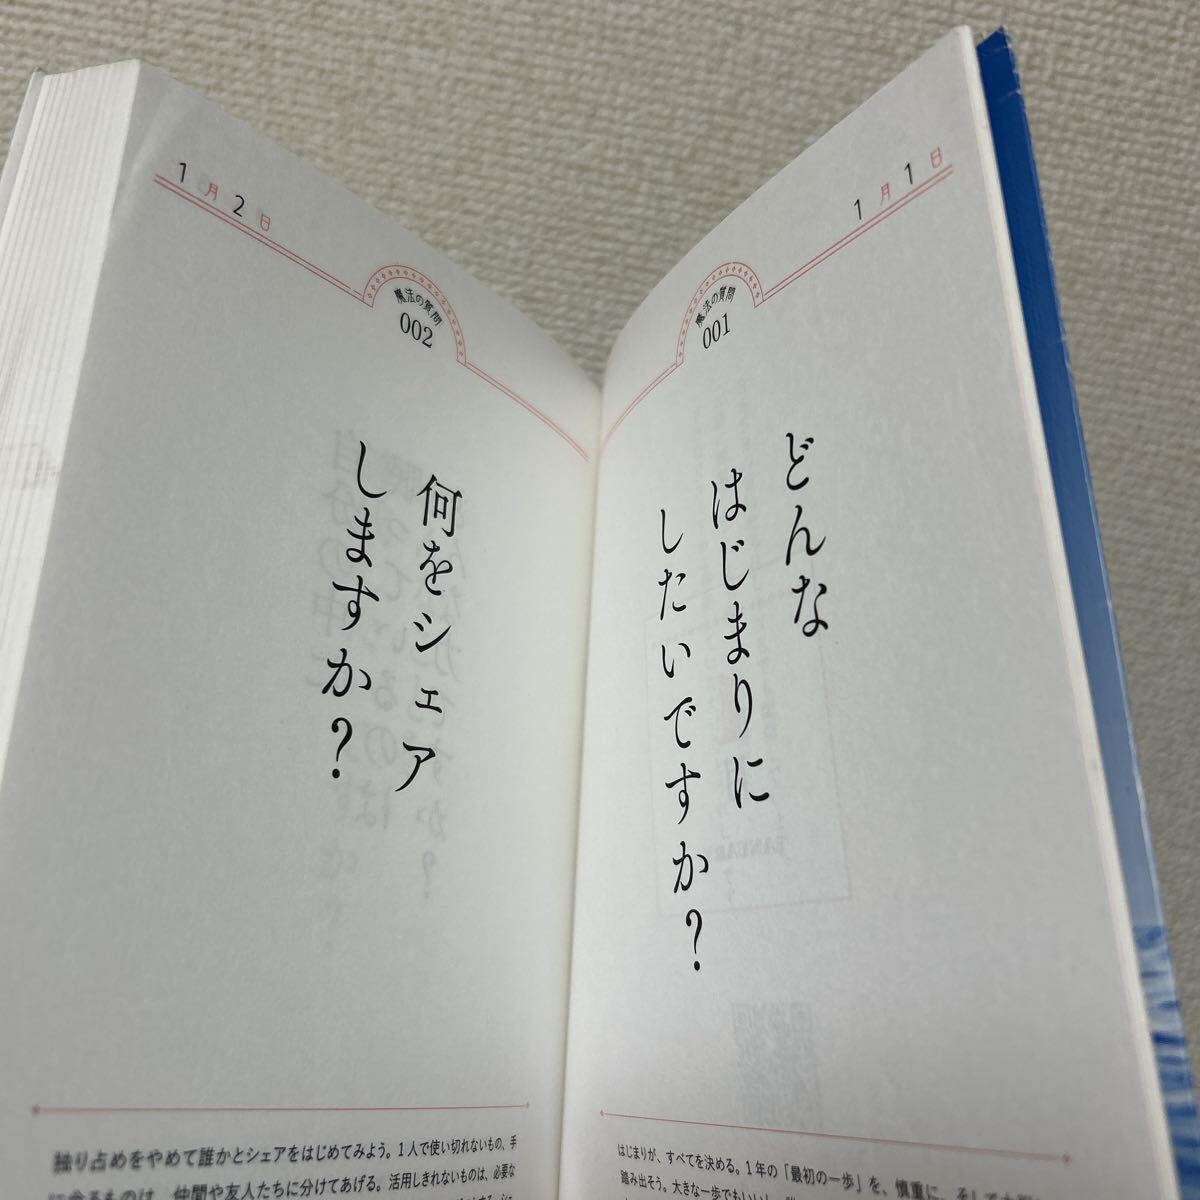 1月1日
魔法の質問
001
どんな
はじまりに
したいですか?
はじまりが、すべてを決める。1年の「最初の一歩」を、慎重に、そして
踏み出そう。大きな一歩でもいいし、
1月2日
魔法の質問
002
何をシェア
しますか?
独り占めをやめて誰かとシェアをはじめてみよう。1人で使い切れないもの、手
に余るものは、仲間や友人たちに分けてあげる。活用しきれないものは、必要な